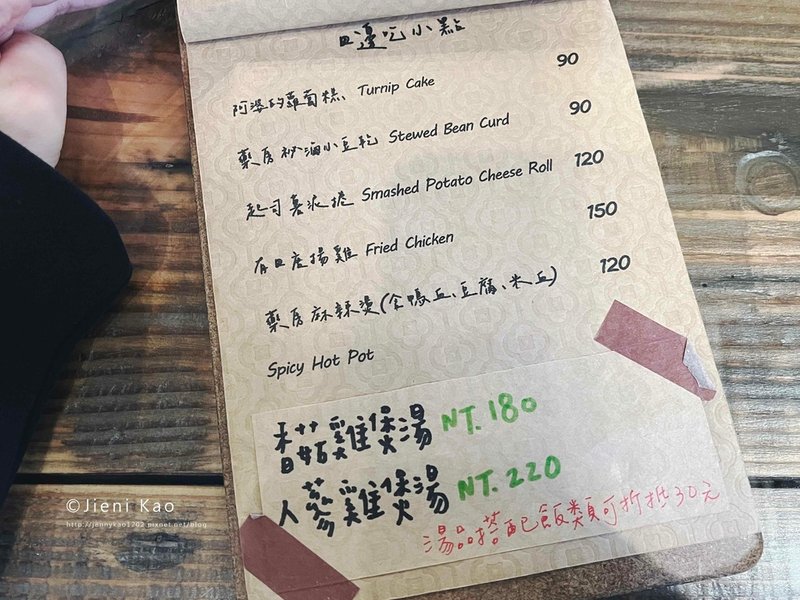 口邊吃小點
阿婆的蘿蔔糕 Turnip Cake 90
藥房祕滷小豆乾 Stewed Bean Curd 90
起司喜派捲 Smashed Potato Cheese Roll 120
有口庄揚雞 Fried Chicken 150
藥房麻辣燙(含鴨血、豆腐、米血) 120
Spicy Hot Pot
雞煲湯 NT.180
人蔘雞煲湯 NT.220
湯品搭配飯類可折抵30元
©Jieni Kao
http://jennykao1202.pixnet.net/blog